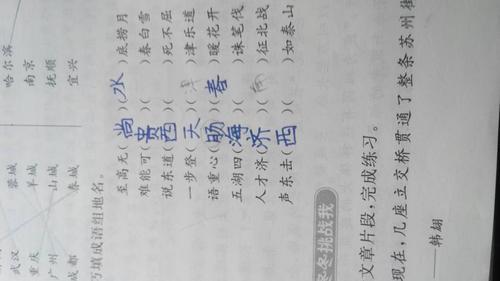 武汉 蓉城 哈尔滨
重庆 羊城 南京
广州 山城 抚顺
成都 春城 宜兴
填成语组地名。
至高无(尚)(水)底捞月
难能可(贵)( )春白雪
说东道(西)( )死不屈
一步登(天)( )津乐道
语重心(肠)(春)暖花开
五湖四(海)( )诛笔伐
人才济(济)( )征北战
声东击(西)( )如泰山
冬挑战我
文章片段，完成练习。
现在，几座立交桥贯通了整条苏州街
——韩翃